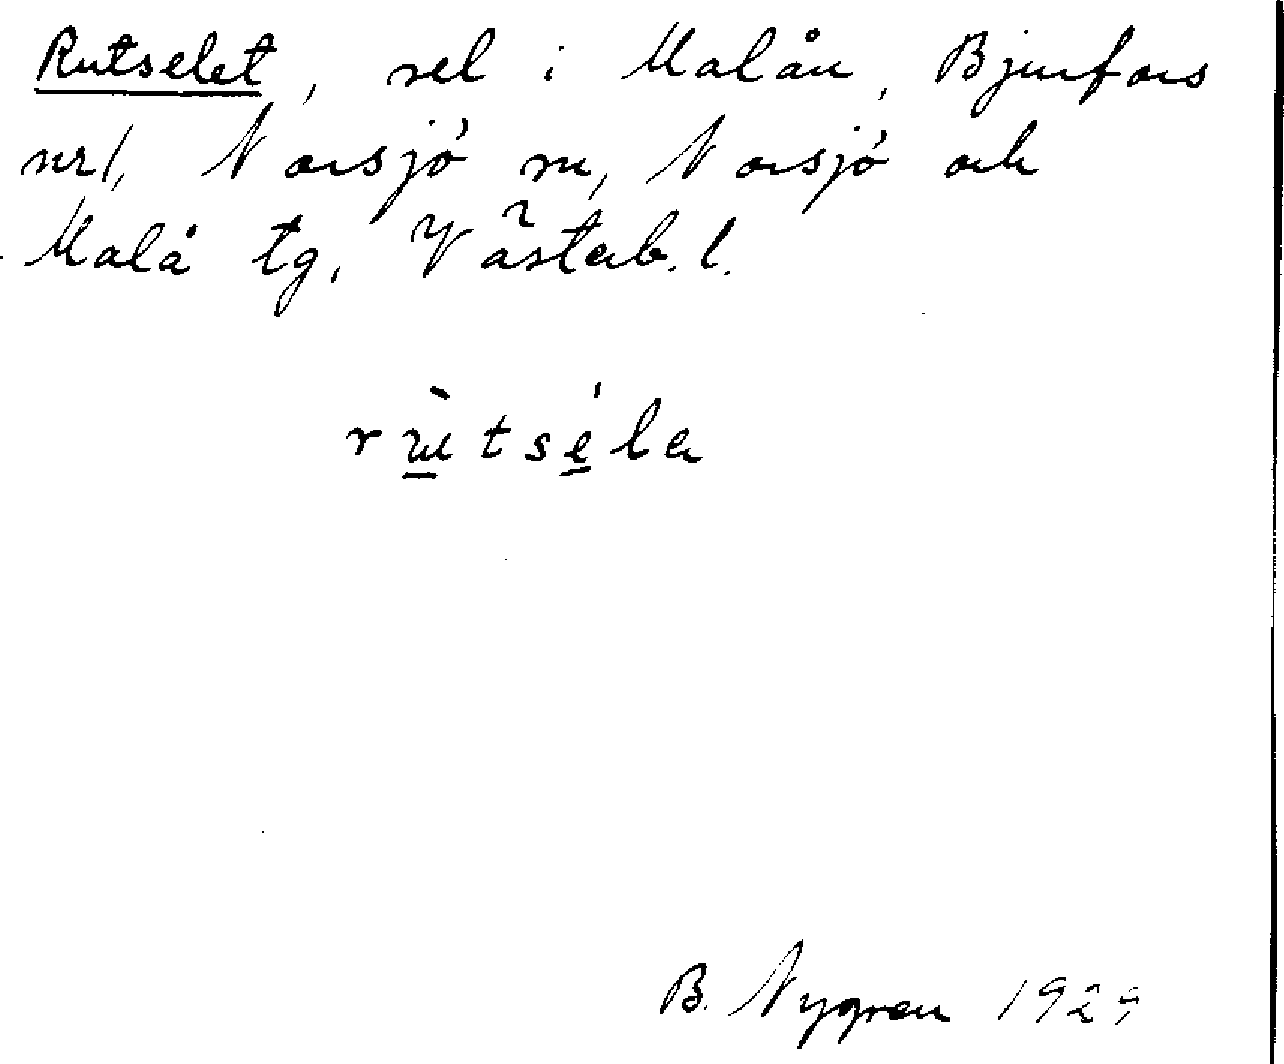 Rutselet, sel i Malån, Bjurfors
nr 1, Norsjö sn, Norsjö och
Malå tg, Västerb. l.
rùtséla
B. Nygren 1929